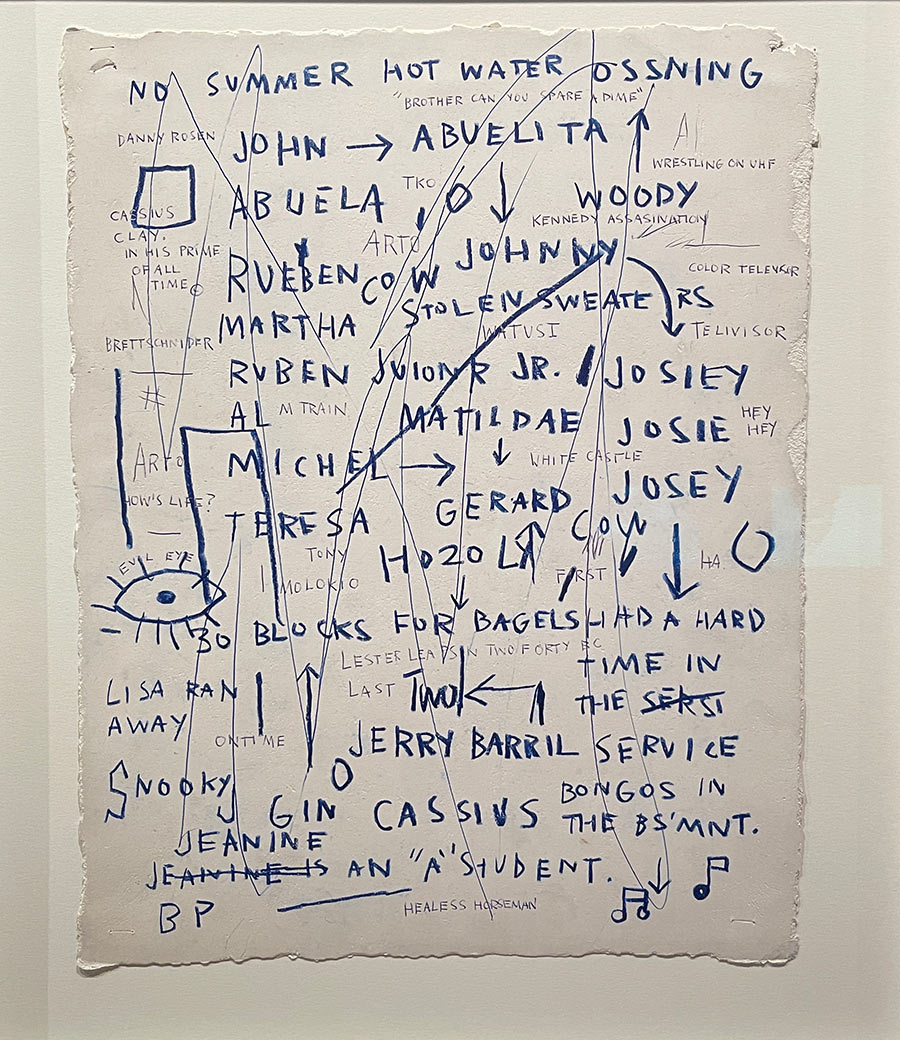 NO SUMMER HOT WATER OSSNING
"BROTHER CAN YOU SPARE A DIME"
DANNY ROSEN
JOHN → ABUELITA
AL
WRESTLING ON UHF
ABUELA
TKO
O
WOODY
CASSIUS
CLAY.
IN HIS PRIME
OF ALL
TIME©
KENNEDY ASSASINATION
ARTO
JOHNNY
RUEBEN
COW
COLOR TELEVISR
STOLEN SWEATERS
MARTHA
WATUSI
TELIVISOR
BRETTSCHNIDER
RUBEN JUIONR JR.
JOSIEY
#
AL
M TRAIN
MATILDAE
JOSIE
HEY
HEY
ARTO
MICHEL →
WHITE CASTLE
JOSEY
HOW'S LIFE?
GERARD
TERESA
COW
TONY
HOZO LA
FIRST
HA
O
EVIL EYE
MOLOKIO
30 BLOCKS FOR BAGELS
HAD A HARD
TIME IN
THE SERSI
SERVICE
LESTER LEAPS IN TWO FORTY BC
LISA RAN
AWAY
LAST
TWO
ONTIME
JERRY BARRIL
O
SNOOKY
J GIN CASSIUS
BONGOS IN
THE BS'MNT.
JEANINE
JEANINE IS AN "A" STUDENT.
BP
HEALESS HORSEMAN